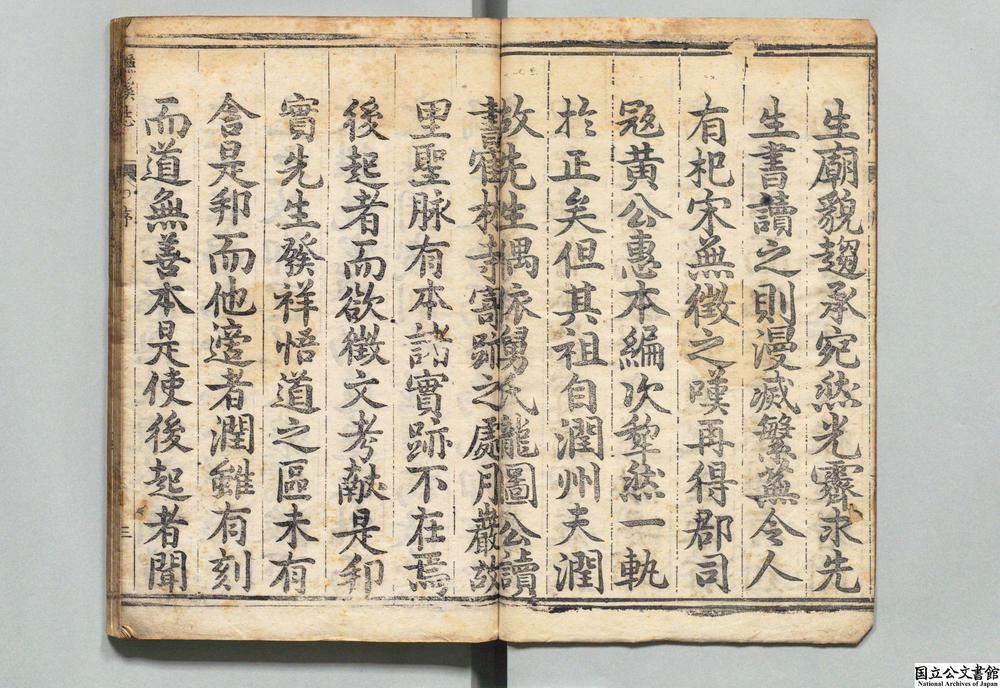 生廟貌趨承宛然光霽求先
生書讀之則漫滅繁蕪令人
有杞宋無徵之嘆再得郡司
寇黃公惠本編次犂然一軌
於正矣但其祖自潤州夫潤
故先生偶依舅氏龍圖公讀
書宿林寺寄跡之處月巖故
里聖脉有本諸實跡不在焉
後起者而欲徵文考献是邦
實先生發祥悟道之區未有
舍是邦而他適者潤雖有刻
而道無善本是使後起者聞
序
三
国立公文書館
National Archives of Japan